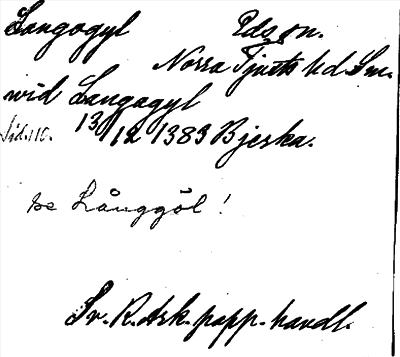 Langagyl Eds sn.
Norra Tjusts hd. Sm.
wid Langagyl
Sid. 110. 13/12 1383 Bjerka.
se Långgöl!
Sv. R. Ark. papp. handl.